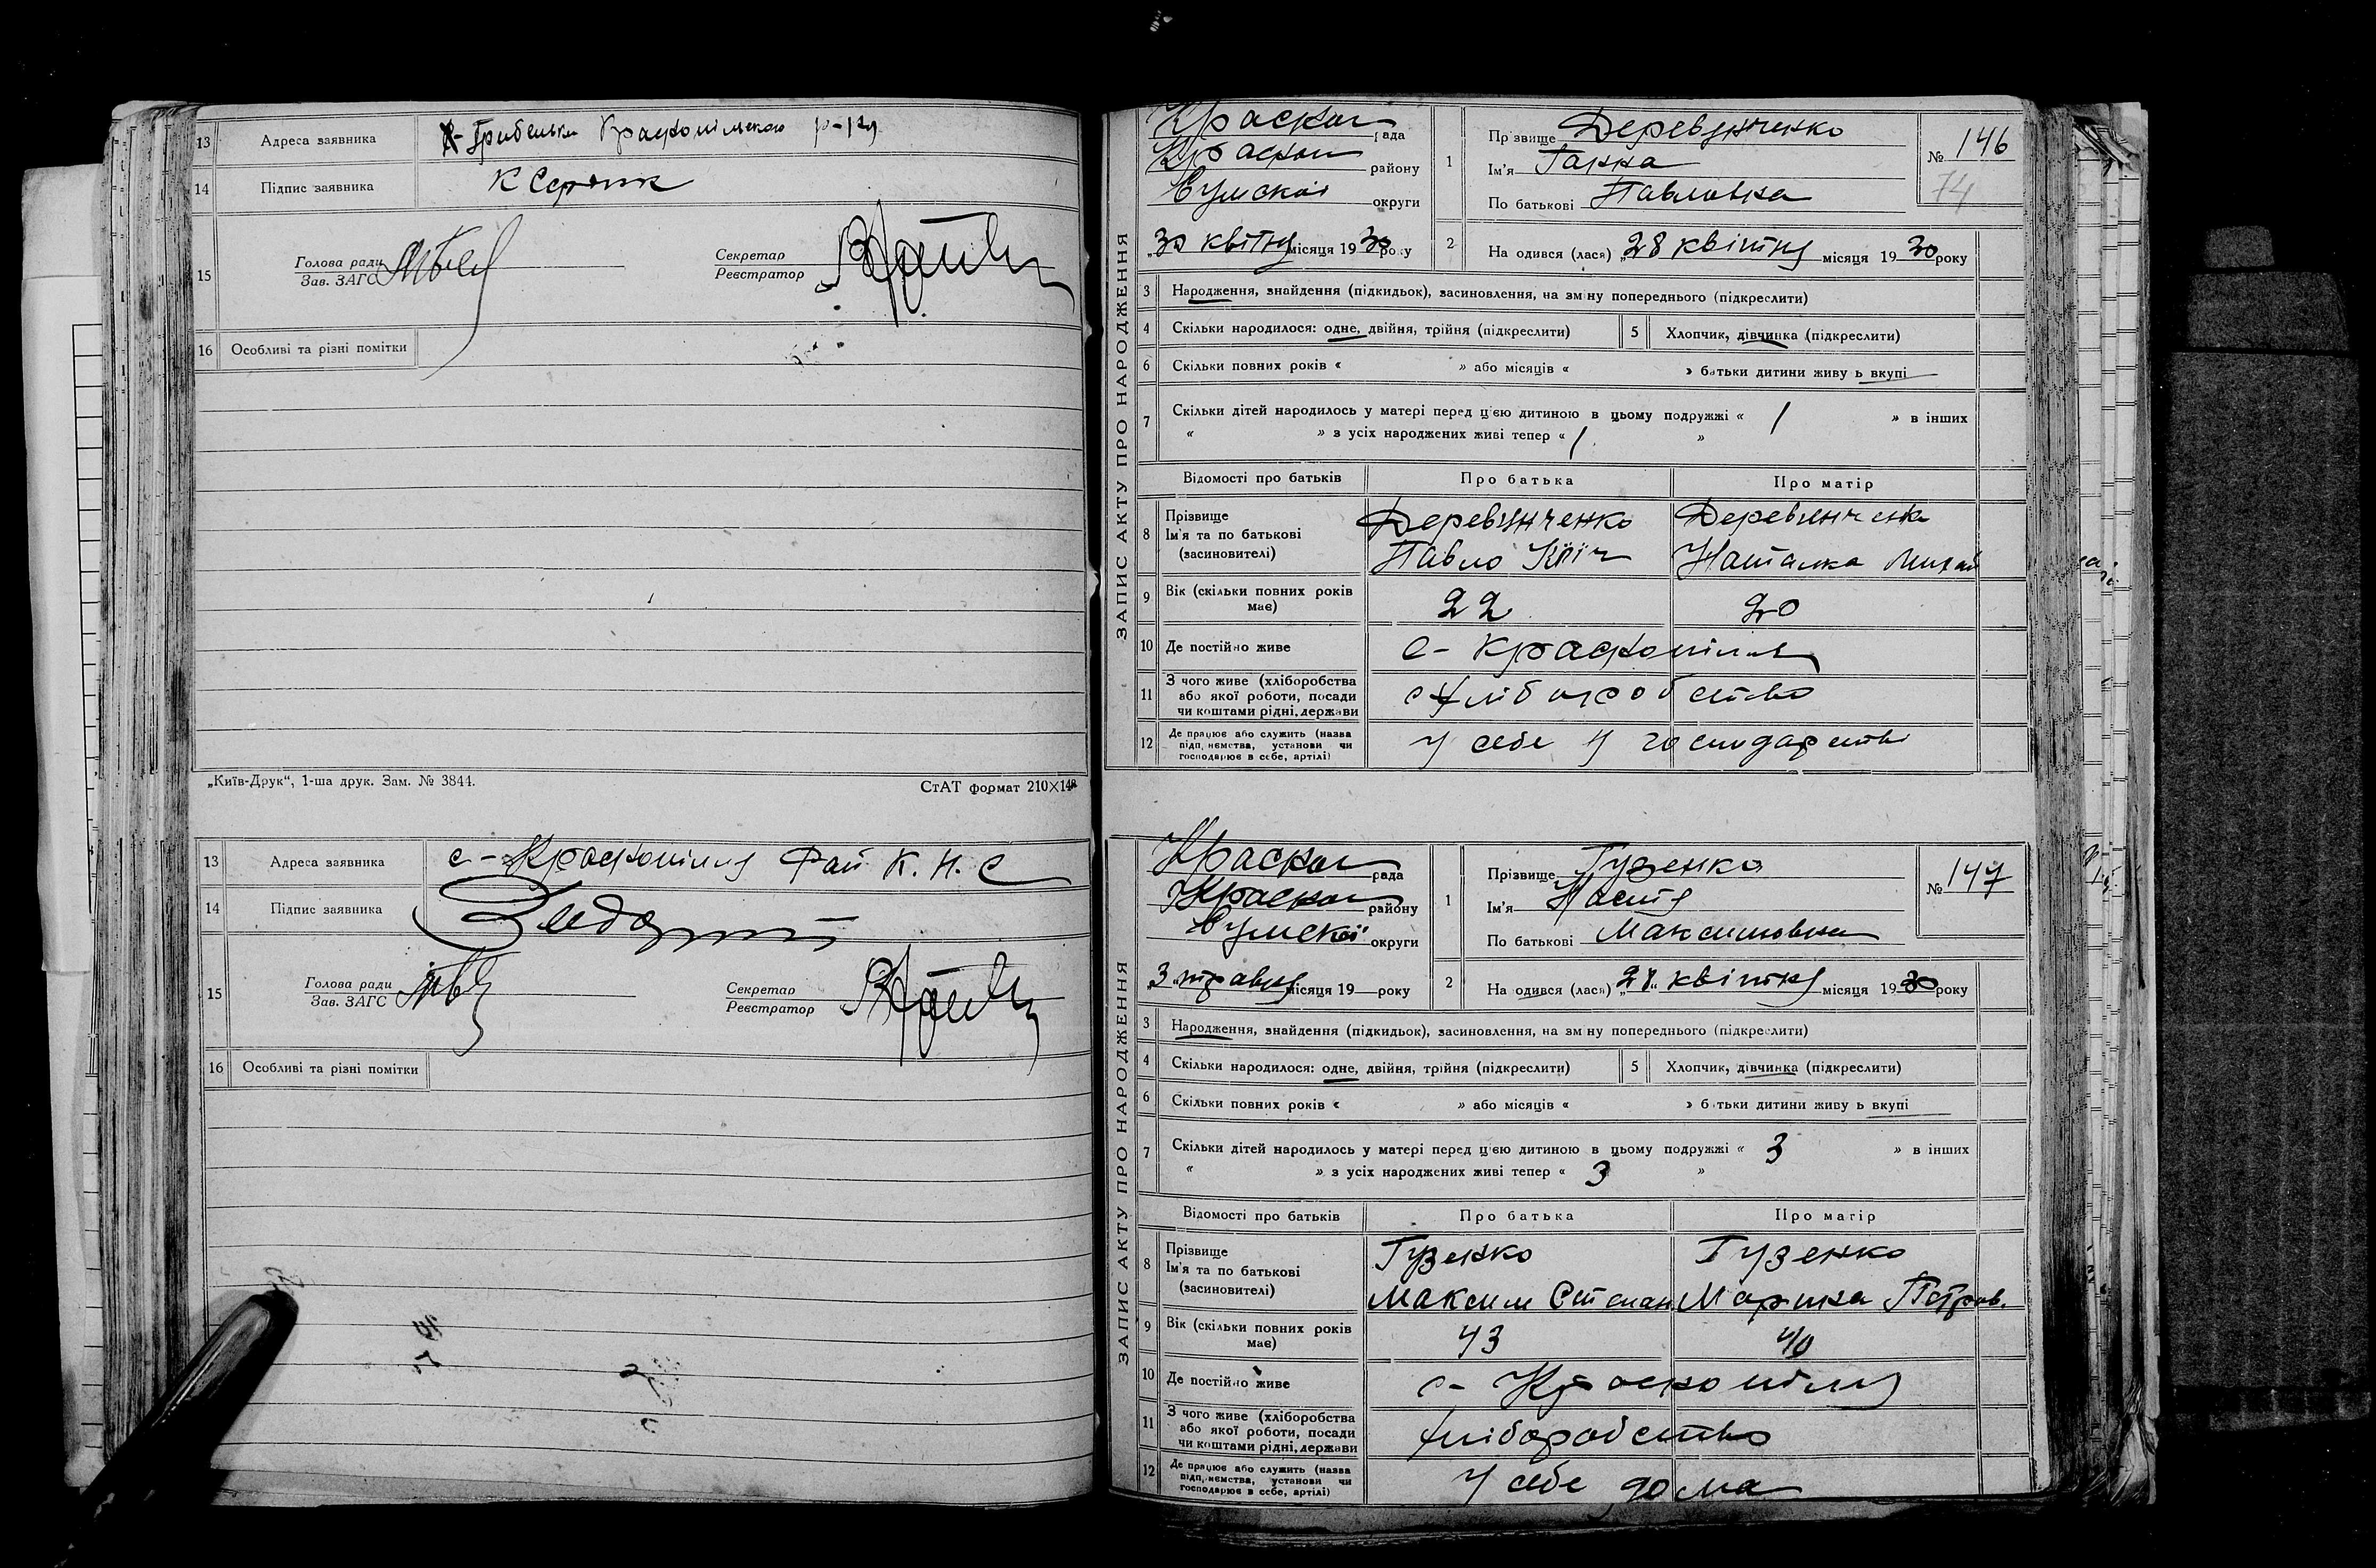 13 Адреса заявника Х- Грибеньки Краснопільського р-ну
14 Підпис заявника К Сєрпик
15 Голова ради Секретар
Зав. ЗАГС Реєстратор
16 Особливі та різні помітки
„Київ-Друк“, 1-ша друк. Зам. № 3844. СтАТ формат 210×148
13 Адреса заявника с-Краснопілля Рай К. Н. С
14 Підпис заявника
15 Голова ради Секретар
Зав. ЗАГС Реєстратор
16 Особливі та різні помітки
ЗАПИС АКТУ ПРО НАРОДЖЕННЯ
Краспол рада
Краспол району
Сумської округи
„30 квітня місяця 1930 року
1 Прізвище Деревянченко
Ім'я Ганна
По батькові Павловна
№ 146
74
2 На одився (лася) „28 квітня місяця 1930 року
3 Народження, знайдення (підкидьок), засиновлення, на зміну попереднього (підкреслити)
4 Скільки народилося: одне, двійня, трійня (підкреслити) 5 Хлопчик, дівчинка (підкреслити)
6 Скільки повних років « » або місяців « » батьки дитини живу ь вкупі
7 Скільки дітей народилось у матері перед цією дитиною в цьому подружжі « 1 » в інших
« » з усіх народжених живі тепер « 1 »
Відомості про батьків Про батька Про матір
8 Прізвище Деревянченко Деревянченко
Ім'я та по батькові
(засиновителі) Павло Наталка Михай
9 Вік (скільки повних років має) 22 20
10 Де постійно живе с- Краснопілля
11 З чого живе (хліборобства
або якої роботи, посади
чи коштами рідні, держави хліборобство
12 Де працює або служить (назва
підп, немства, установи чи
господарює в себе, артілі) У себе у господарстві
ЗАПИС АКТУ ПРО НАРОДЖЕННЯ
Краспол рада
Краспол району
Сумської округи
3 „травня місяця 19 року
1 Прізвище Гузенко
Ім'я Настя
По батькові Максимовна
№ 147
2 На одився (лася) „28„ квітня місяця 1930 року
3 Народження, знайдення (підкидьок), засиновлення, на зміну попереднього (підкреслити)
4 Скільки народилося: одне, двійня, трійня (підкреслити) 5 Хлопчик, дівчинка (підкреслити)
6 Скільки повних років « » або місяців « » б тьки дитини живу ь вкупі
7 Скільки дітей народилось у матері перед цією дитиною в цьому подружжі « 3 » в інших
« » з усіх народжених живі тепер « 3 »
Відомості про батьків Про батька Про матір
8 Прізвище Гузенко Гузенко
Ім'я та по батькові
(засиновителі) Максим Степан Маришка Петров.
9 Вік (скільки повних років має) 43 40
10 Де постійно живе с- Краснопілля
11 З чого живе (хліборобства
або якої роботи, посади
чи коштами рідні, держави хліборобство
12 Де працює або служить (назва
підп, немства, установи чи
господарює в себе, артілі) У себе дома